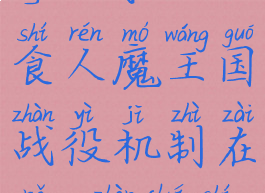 shí rén mó wáng guó
食人魔王国
zhàn yì jī zhì zài
战役机制在